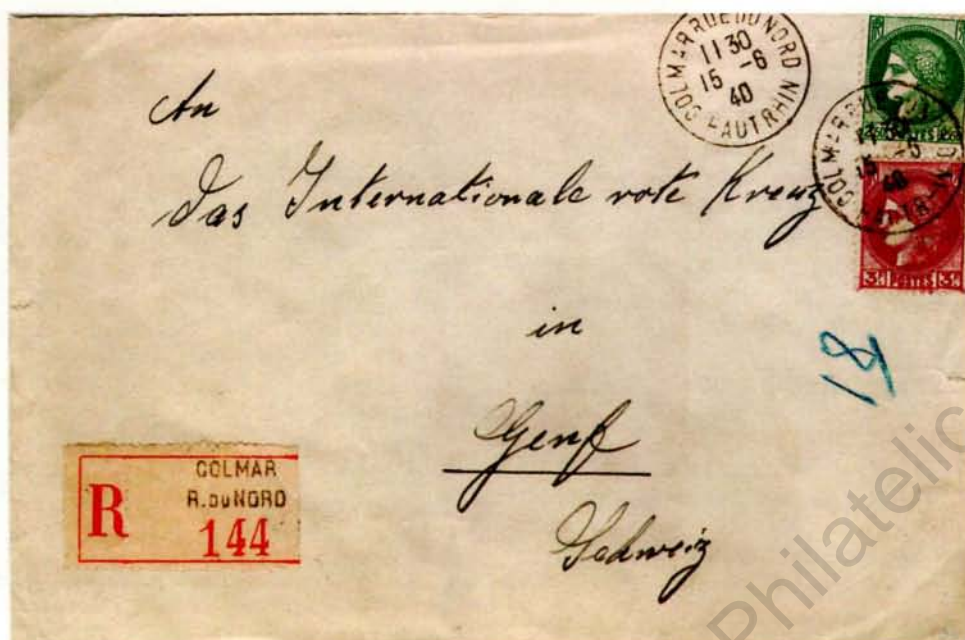 COLMAR RUE DU NORD
11 30
15 -6
40
HAUT RHIN
COLMAR RUE
15
40
3F POSTES 3F
An
das Internationale rote Kreuz
in
Genf
Schweiz
18
R
COLMAR
R. DU NORD
144
Philatelic